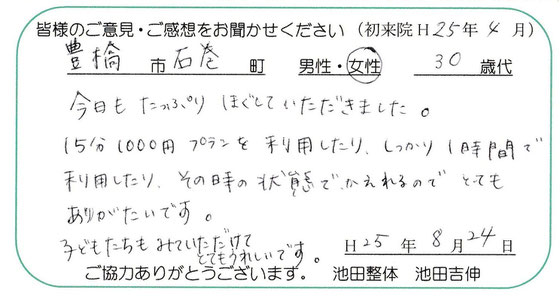 皆様のご意見・ご感想をお聞かせください（初来院H25年4月）
豊橋市石巻町 男性・女性 30歳代
今日も たっぷり ほぐしていただきました。
15分1000円 プランを 利用したり、しっかり 1時間で
利用したり、その時の 状態で、かえれるので とても
ありがたいです。
子どもたちも みていただけて
とてもうれしいです。
H25年8月24日
ご協力ありがとうございます。 池田整体 池田吉伸